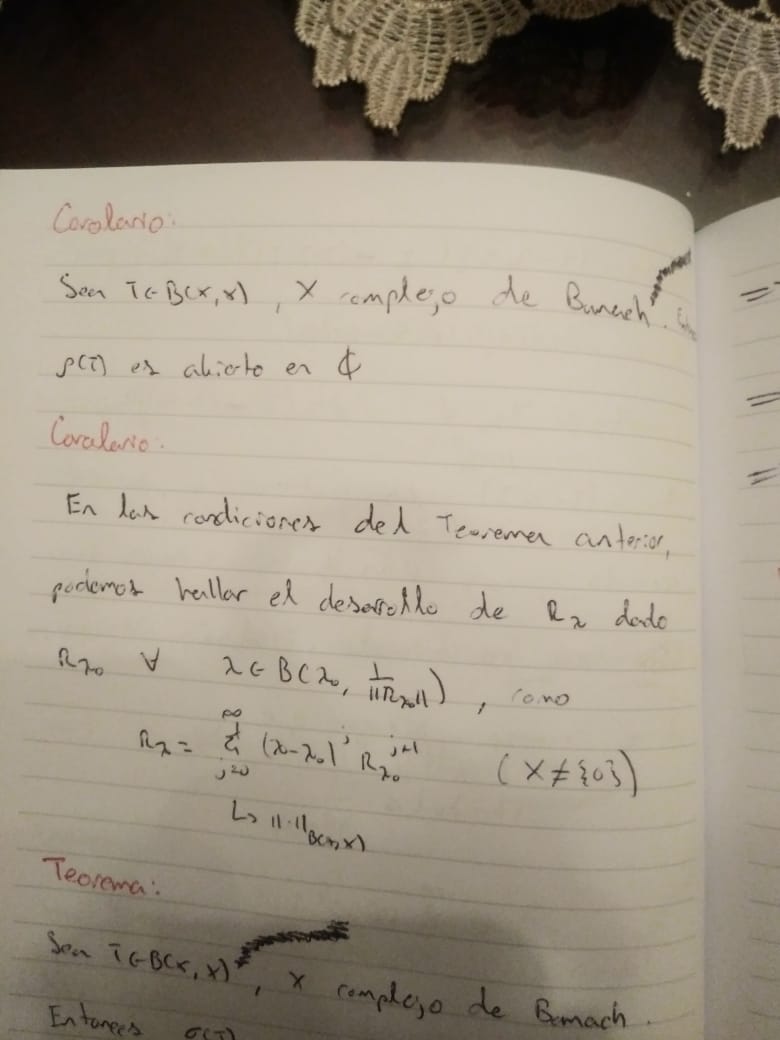 Corolario:
Sea T∈B(X,X), X complejo de Banach.
ρ(T) es abierto en ℂ
Corolario:
En las condiciones del Teorema anterior,
podemos hallar el desarrollo de R_λ dado
R_λ₀ ∀ λ∈B(λ₀, 1/||R_λ₀||), como
R_λ = Σ_{j=0}^{∞} (λ-λ₀)^j R_λ₀^{j+1} (X≠{0})
↳ ||·||_B(X,X)
Teorema:
Sea T∈B(X,X), X complejo de Banach.
Entonces σ(T)